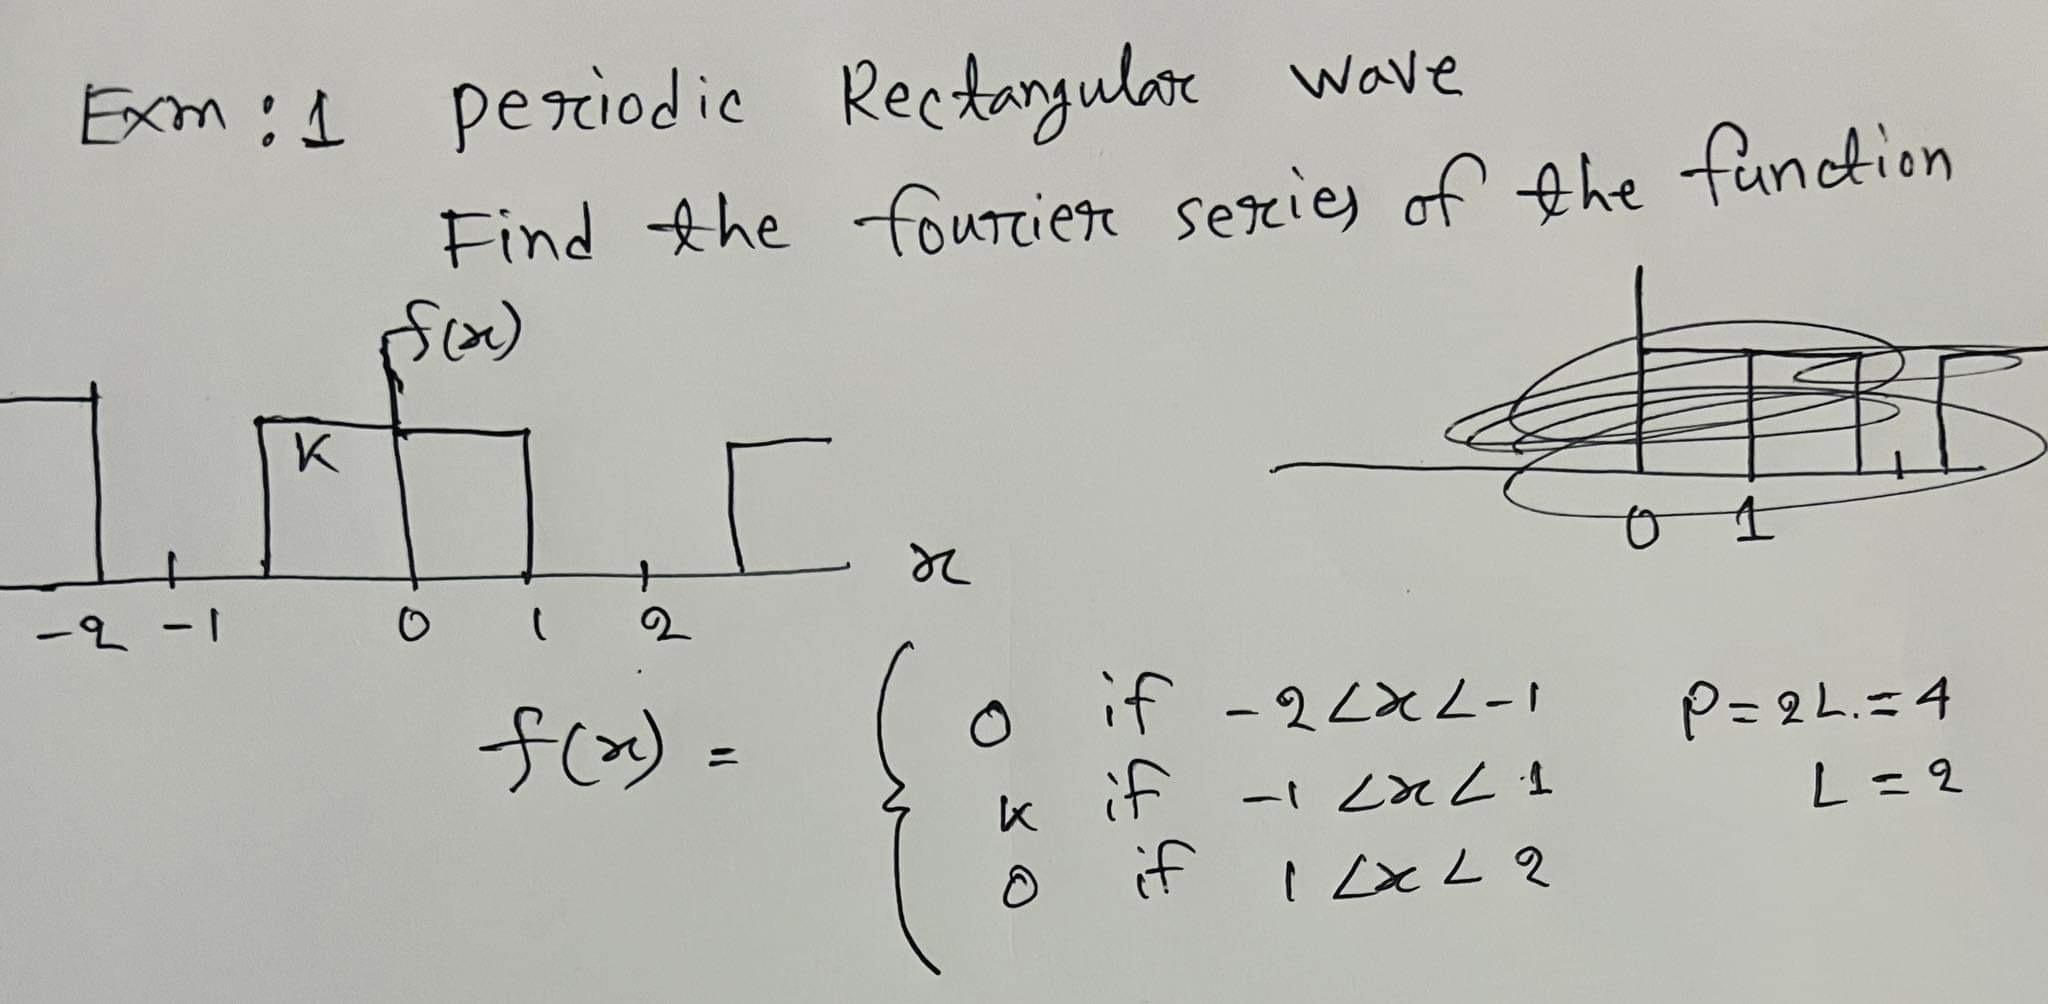 Exm : 1 periodic Rectangular wave
Find the fourier series of the function
f(x)
K
x
-2 -1 0 1 2
0 1
f(x) = { 0 if -2 < x < -1 P = 2L. = 4
k if -1 < x < 1 L = 2
0 if 1 < x < 2